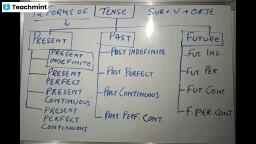 Teachmint
FORMS OF TENSE SUB + V + OBJE.
PRESENT
PRESENT INDEFINITE
PRESENT PERFECT
PRESENT CONTINUOUS
PRESENT PERFECT CONTINUOUS
PAST
PAST INDEFINITE
PAST PERFECT
PAST CONTINUOUS
PAST PERF. CONT.
FUTURE
FUT IND.
FUT PER.
FUT CONT.
F. PER CONT.